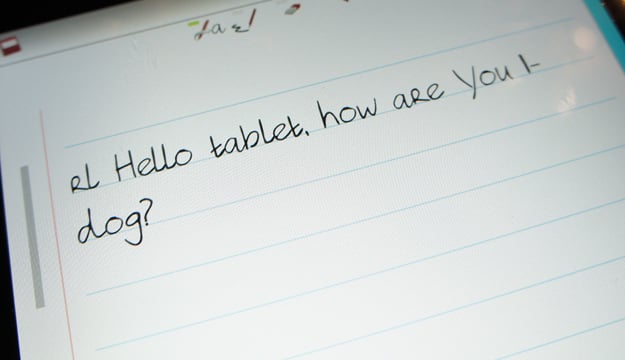 RL Hello tablet, how are you 1-
dog?